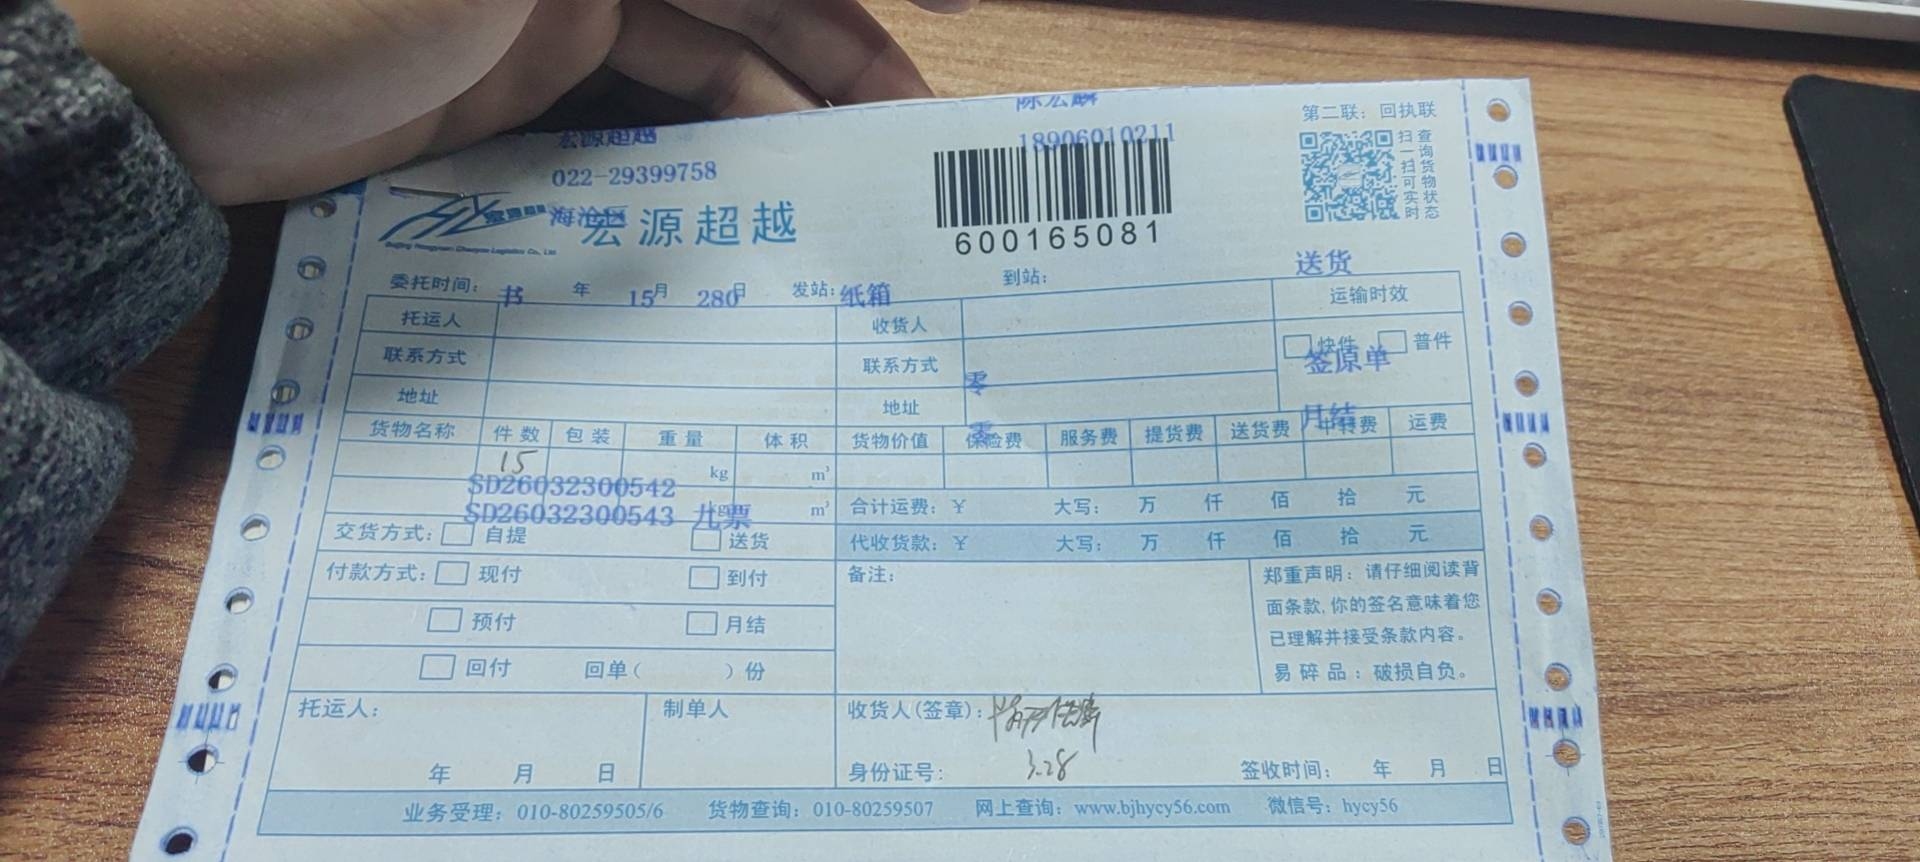 陈宏麟
第二联：回执联
宏源超越
18906010211
022-29399758
扫一扫可实时
查询货物状态
海沧区
宏源超越
600165081
送货
委托时间： 书 年 15月 280日 发站：纸箱 到站：
托运人 收货人 运输时效
联系方式 联系方式 快件 普件
签原单
零
地址 地址
月结
货物名称 件数 包装 重量 体积 货物价值 保险费 服务费 提货费 送货费 中转费 运费
零
15 kg m³
SD26032300542
合计运费：￥ 大写： 万 仟 佰 拾 元
SD26032300543 九票 kg m³
交货方式： 自提 送货 代收货款：￥ 大写： 万 仟 佰 拾 元
付款方式： 现付 到付 备注：
预付 月结
回付 回单（ ）份
郑重声明：请仔细阅读背
面条款,你的签名意味着您
已理解并接受条款内容。
易碎品：破损自负。
托运人： 制单人 收货人(签章)：
年 月 日 身份证号： 3.28 签收时间： 年 月 日
业务受理：010-80259505/6 货物查询：010-80259507 网上查询：www.bjhycy56.com 微信号：hycy56